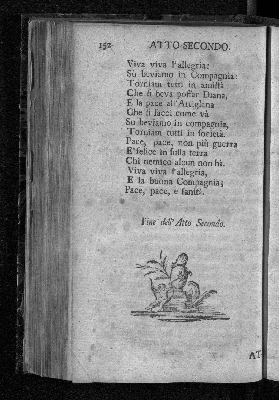 152 ATTO SECONDO.
Viva viva l'allegria:
Su beviamo in Compagnia:
Torniam tutti in amistà
Che si beva poffar Diana,
E la pace all'Artigiana
Che si facci come và
Su beviamo in compagnia,
Torniam tutti in società.
Pace, pace, non più guerra
E' felice in sulla terra
Chi nemico alcun non hà.
Viva viva l'allegria,
E la buona Compagnia;
Pace, pace, e sanità.
Fine dell' Atto Secondo.
AT-